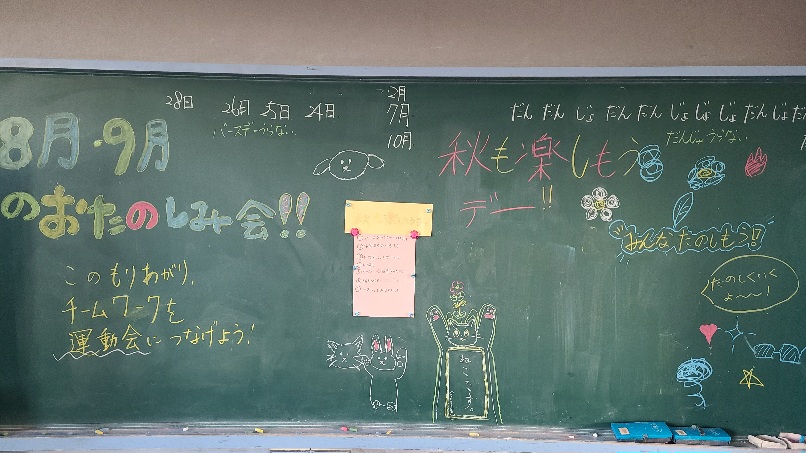 28日 26日 25日 24日
バースデーうらない
2月
7月
10月
だん だん じょ だん だん じょ じょ じょ だん じょ だん
だんじょうらない
8月・9月
のおたのしみ会!!
秋も楽しもう
デー!!
みんなたのしもう!!
たのしくいく
よ〜〜!
このもりあがり、
チームワークを
運動会につなげよう!